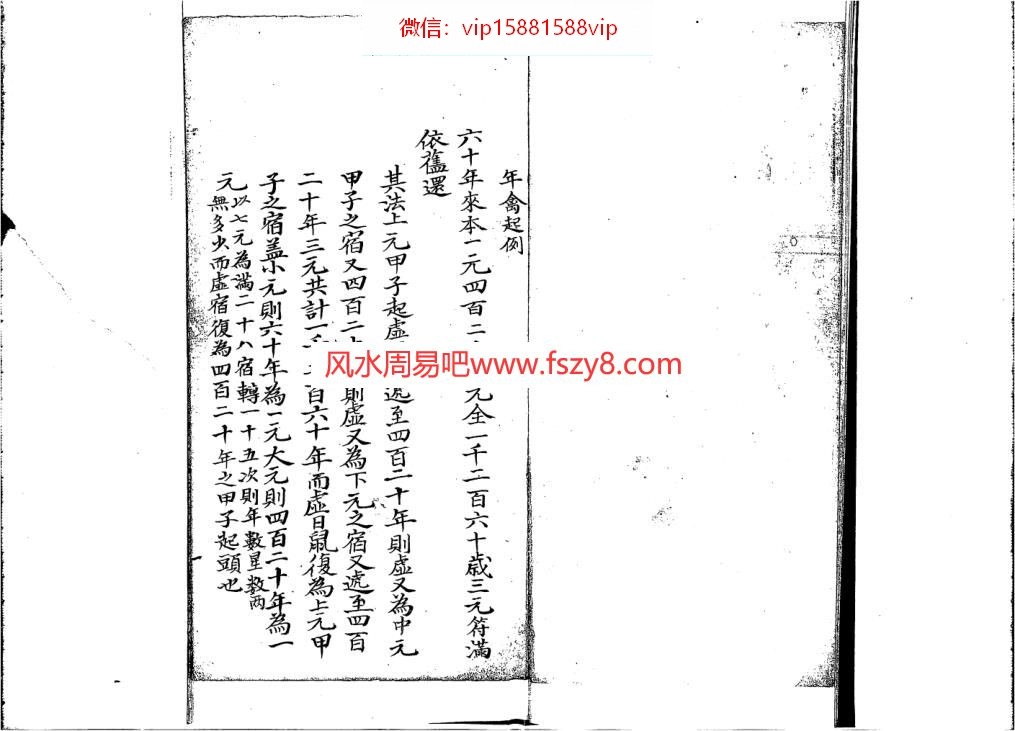 微信：vip15881588vip
年禽起例
六十年來本一元四百二
元全一千二百六十歲三元符滿
依舊還
其法上元甲子起虛
遞至四百二十年則虛又為中元
甲子之宿又四百二十
則虛又為下元之宿又遞至四百
二十年三元共計一千二百六十年而虛日鼠復為上元甲
子之宿盖小元則六十年為一元大元則四百二十年為一
元以七元為滿二十八宿轉一十五次則年數星数兩
無多少而虛宿復為四百二十年之甲子起頭也
风水周易吧www.fszy8.com